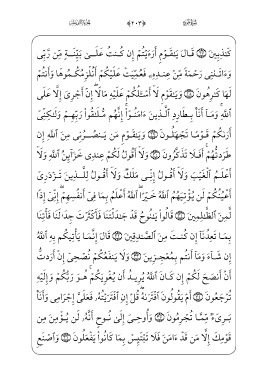 كَٰذِبِينَ ۝ قَالَ يَٰقَوْمِ أَرَءَيْتُمْ إِن كُنتُ عَلَىٰ بَيِّنَةٍ مِّن رَّبِّى
وَءَاتَىٰنِى رَحْمَةً مِّنْ عِندِهِۦ فَعُمِّيَتْ عَلَيْكُمْ أَنُلْزِمُكُمُوهَا وَأَنتُمْ
لَهَا كَٰرِهُونَ ۝ وَيَٰقَوْمِ لَآ أَسْـَٔلُكُمْ عَلَيْهِ مَالًا إِنْ أَجْرِىَ إِلَّا عَلَى
ٱللَّهِ وَمَآ أَنَا۠ بِطَارِدِ ٱلَّذِينَ ءَامَنُوٓا۟ إِنَّهُم مُّلَٰقُوا۟ رَبِّهِمْ وَلَٰكِنِّىٓ
أَرَىٰكُمْ قَوْمًا تَجْهَلُونَ ۝ وَيَٰقَوْمِ مَن يَنصُرُنِى مِنَ ٱللَّهِ إِن
طَرَدتُّهُمْ أَفَلَا تَذَكَّرُونَ ۝ وَلَآ أَقُولُ لَكُمْ عِندِى خَزَآئِنُ ٱللَّهِ وَلَآ
أَعْلَمُ ٱلْغَيْبَ وَلَآ أَقُولُ إِنِّى مَلَكٌ وَلَآ أَقُولُ لِلَّذِينَ تَزْدَرِىٓ
أَعْيُنُكُمْ لَن يُؤْتِيَهُمُ ٱللَّهُ خَيْرًا ٱللَّهُ أَعْلَمُ بِمَا فِىٓ أَنفُسِهِمْ إِنِّىٓ إِذًا
لَّمِنَ ٱلظَّٰلِمِينَ ۝ قَالُوا۟ يَٰنُوحُ قَدْ جَٰدَلْتَنَا فَأَكْثَرْتَ جِدَٰلَنَا فَأْتِنَا
بِمَا تَعِدُنَآ إِن كُنتَ مِنَ ٱلصَّٰدِقِينَ ۝ قَالَ إِنَّمَا يَأْتِيكُم بِهِ ٱللَّهُ
إِن شَآءَ وَمَآ أَنتُم بِمُعْجِزِينَ ۝ وَلَا يَنفَعُكُمْ نُصْحِىٓ إِنْ أَرَدتُّ
أَنْ أَنصَحَ لَكُمْ إِن كَانَ ٱللَّهُ يُرِيدُ أَن يُغْوِيَكُمْ هُوَ رَبُّكُمْ وَإِلَيْهِ
تُرْجَعُونَ ۝ أَمْ يَقُولُونَ ٱفْتَرَىٰهُ قُلْ إِنِ ٱفْتَرَيْتُهُۥ فَعَلَىَّ إِجْرَامِى وَأَنَا۠
بَرِىٓءٌ مِّمَّا تُجْرِمُونَ ۝ وَأُوحِىَ إِلَىٰ نُوحٍ أَنَّهُۥ لَن يُؤْمِنَ مِن
قَوْمِكَ إِلَّا مَن قَدْ ءَامَنَ فَلَا تَبْتَئِسْ بِمَا كَانُوا۟ يَفْعَلُونَ ۝ وَٱصْنَعِ